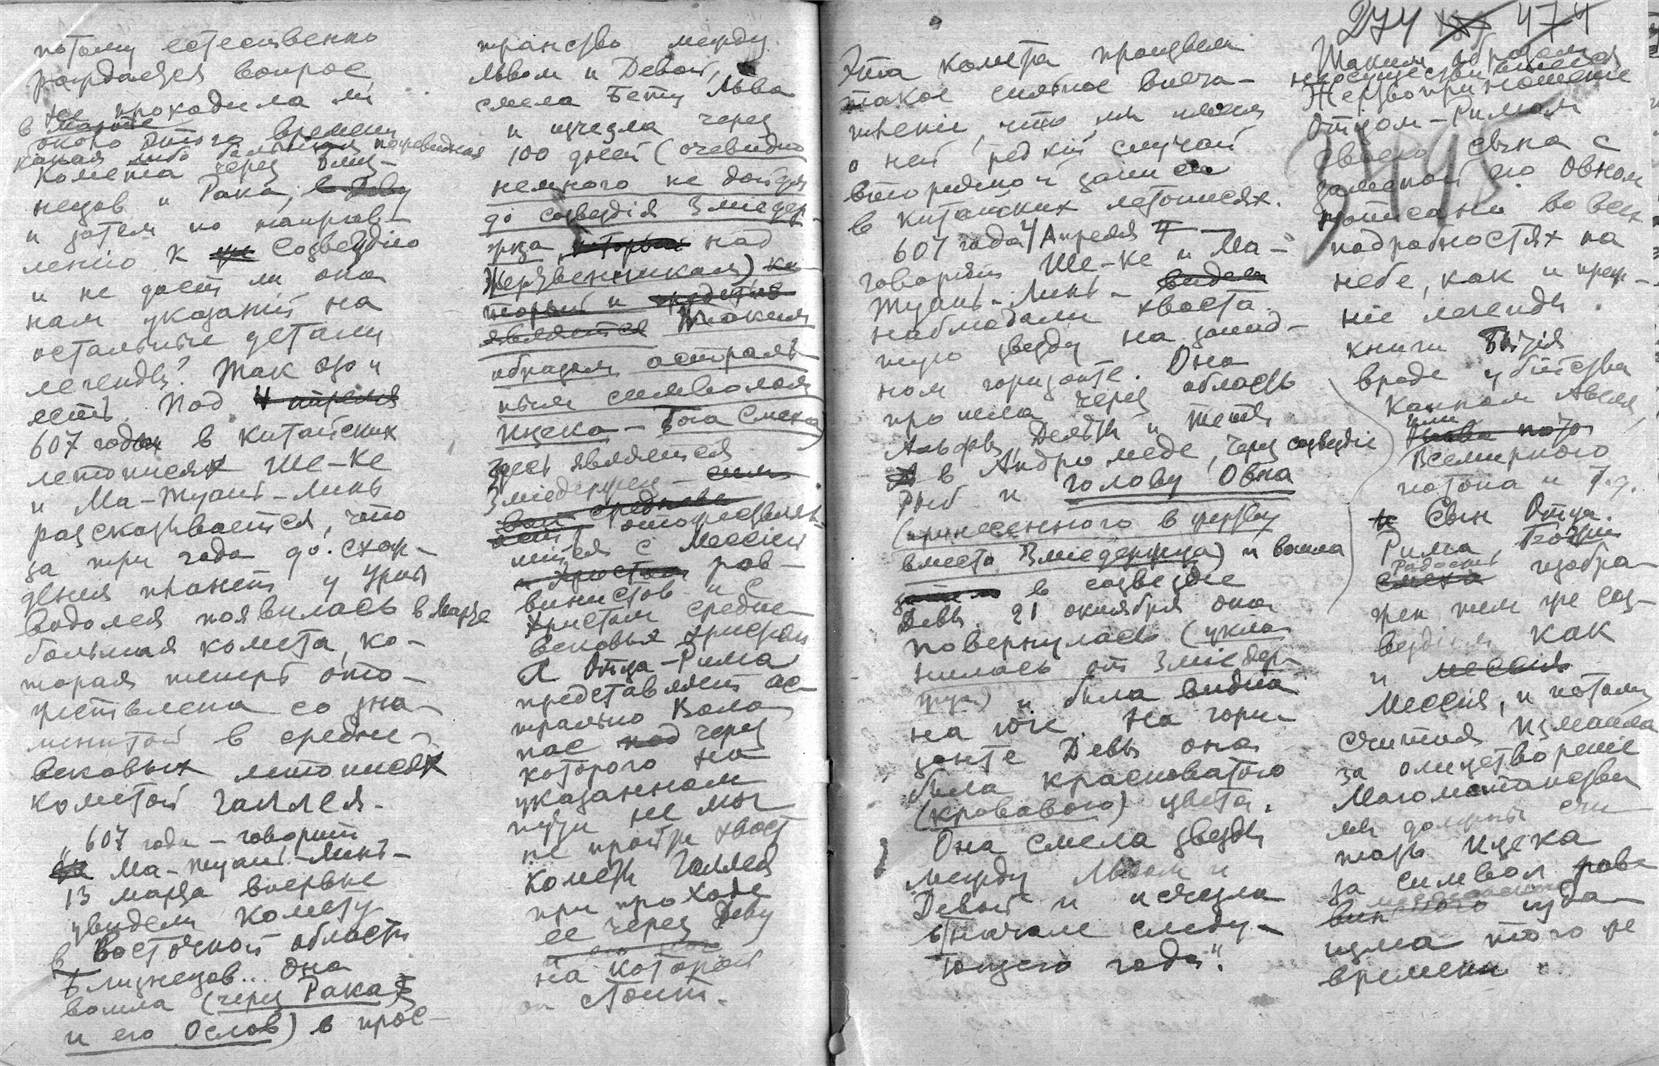 потому естественно
рождается вопрос
не проходила ли
в Марте
около этого времени
какая либо большая
комета через Близ-
нецов и Рака,
и затем по направ-
лению к созвездию
и не дает ли она
нам указаній на
остальные детали
легенды? Так оно и
есть. Под 4 апреля
607 годом в китайских
летописях Ше-Ке
и Ма-Туань-Линь
разсказывается, что
за три года до схож-
дения планет у Урны
Водолея появилась в Марте
большая комета, ко-
торая теперь ото-
жествлена со зна-
менитой в средне-
вековых летописях
кометой Галлея.
„607 года – говорит
Ма-Туань-Линь –
13 марта впервые
увидели комету
в восточной области
Близнецов.. Она
вошла (через Рака
и его Ослов) в прос-
транство между
Львом и Девой,
смела Бету Льва
и исчезла через
100 дней (очевидно
немного не дойдя
до созвездія Змиедер-
жца, который над
Жертвенником)
является Таким
образом астраль-
ным символом
Ицека – бога Смеха
здесь является
Змиедержец –
отожествляв-
шійся с Мессией
и Христом рав-
винистов и с
Христом средне-
вековых христіан
А Отца-Рима
представляет ас-
трально Воло-
пас под через
которого на
указанном
пути не мог
не пройти хвост
кометы Галлея
при проходе
ее через Деву
на которой
он стоит.
274 474
Эта комета произвела
такое сильное впеча-
тление, что мы имеем
о ней редкій случай
вторичной записи
в китайских летописях.
607 года 4 Апреля
говорят Ше-Ке и Ма-
Туань-Линь – видели
наблюдали хвоста
тую звезду на запад-
ном горизонте. Она
прошла через область
Альфы, Дельты и Теты
в Андромеде, через созвездіе
Рыб и голову Овна
(принесенного в жертву
вместо Змиедержца) и вошла
затем в созвездіе
Девы. 21 октября она
повернулась (укло-
нилась от Змиедер-
жца) и была видна
на юге. На гори-
зонте Девы она
была красноватого
(кровавого) цвета.
Она смела звезды
между Львом и
Девой и исчезла
в начале следу-
ющего года".
Таким образом
Жертвоприношение
Отцом-Римом
своего сына с
заменой его Овном
написаны во всех
подробностях на
небе, как и преж-
ніе легенды
книги Бытія
вроде убійства
Каином Авеля,
или
Всемирного
потопа и т.д.
Сын Отца.
Рима, Божій
Радость
смеха изобра-
жен тем же соз-
вездіем как
и мессія
Мессія, и потому
считая Измаила
за олицетвореніе
Магометанства
мы должны счи-
тать Ицека
за символ равви-
низма того же
времени.